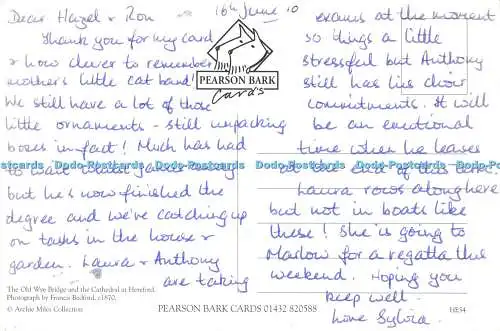 Dear Hazel & Ron
16th June 10
Thank you for my card
& how clever to remember
mother's little cat band!
We still have a lot of those
little ornaments - still unpacking
boxes in fact! Much has had
to wait
but he's now finished the
degree and we're catching up
on tasks in the house &
garden. Laura & Anthony
are taking
exams at the moment
so things a little
stressful but Anthony
still has his choir
commitments. It will
be an emotional
time when he leaves
at the end of this term.
Laura rows along here
but not in boats like
these! She is going to
Marlow for a regatta this
weekend. Hoping you
keep well.
Love Sylvia.
PEARSON BARK
Cards
Dodo-Postcards Dodo-Postcards Dodo-Postcards Dodo-Postcards
The Old Wye Bridge and the Cathedral at Hereford.
Photograph by Francis Bedford, c1870.
© Archie Miles Collection
PEARSON BARK CARDS 01432 820588
HE54